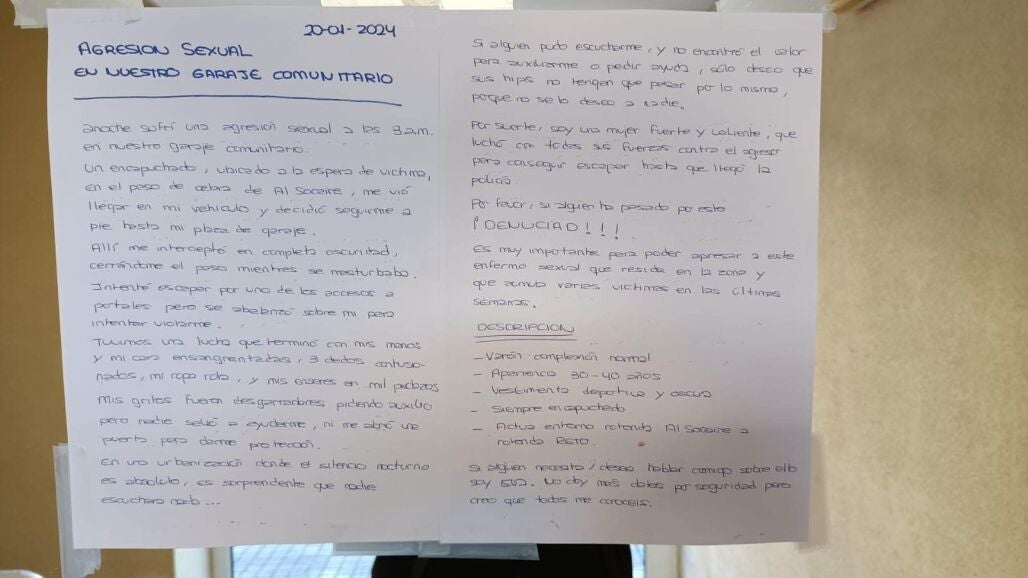 20-01-2024
AGRESION SEXUAL
EN NUESTRO GARAJE COMUNITARIO
anoche sufrí una agresión sexual a las 3 a.m.
en nuestro garaje comunitario.
Un encapuchado, ubicado a la espera de victima,
en el paso de cebra de Al Socaire, me vió
llegar en mi vehiculo y decidió seguirme a
pie hasta mi plaza de garaje.
Allí me interceptó en completa oscuridad,
cerrándome el paso mientras se masturbaba.
Intenté escapar por uno de los accesos a
portales pero se abalanzó sobre mi para
intentar violarme.
Tuvimos una lucha que terminó con mis manos
y mi cara ensangrentadas, 3 dedos contusio-
nados, mi ropa rota, y mis enseres en mil pedazos
Mis gritos fueron desgarradores pidiendo auxilio
pero nadie salió a ayudarme, ni me abrió una
puerta para darme protección.
En una urbanización donde el silencio nocturno
es absoluto, es sorprendente que nadie
escuchara nada...
Si alguien pudo escucharme, y no encontró el valor
para auxiliarme o pedir ayuda, sólo deseo que
sus hijas no tengan que pasar por lo mismo,
porque no se lo deseo a nadie.
Por suerte, soy una mujer fuerte y valiente, que
luchó con todas sus fuerzas contra el agresor
para conseguir escapar hasta que llegó la
policía.
Por favor, si alguien ha pasado por esto
¡DENUCIAD!!!
Es muy importante para poder apresar a este
enfermo sexual que reside en la zona y
que acumula varias victimas en las últimas
semanas.
DESCRIPCION
- Varón complexión normal
- Apariencia 30-40 años
- Vestimenta deportiva y oscura
- Siempre encapuchado.
- Actua entorno rotonda Al Socaire a
rotonda RETO.
Si alguien necesita/desea hablar conmigo sobre ello
soy No doy más datos por seguridad pero
creo que todos me conoceis.